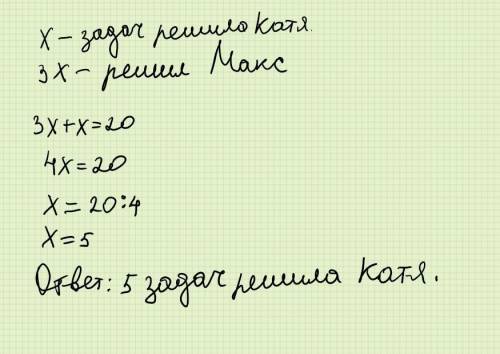 X – задач решило Катя.
3X – решил Макс
3X+X=20
4X=20
X=20:4
X=5
Ответ: 5 задач решила Катя.